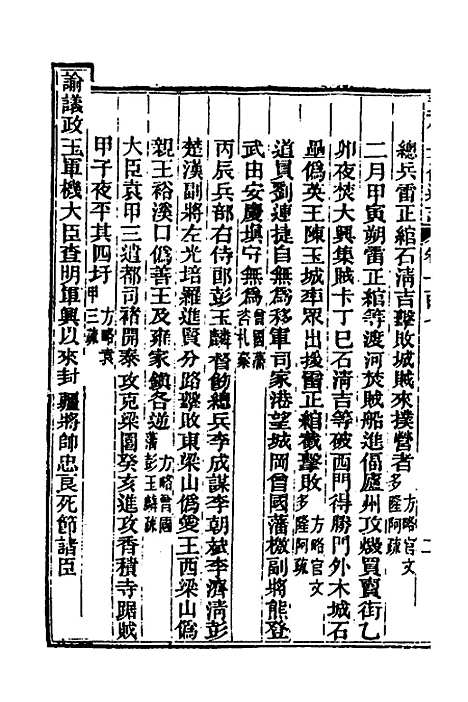 總兵雷正綰石淸吉擊敗城賊來撲營者方略官文多隆阿疏
二月甲寅朔雷正綰等渡河焚賊船進偪廬州攻燬買賣街乙
卯夜焚大興集賊卡丁巳石淸吉等破西門得勝門外木城石
壘僞英王陳玉城率眾出援雷正綰截擊敗方略官文多隆阿疏
道員劉連捷自無爲移軍司家港望城岡曾國藩檄副將熊登
武由安慶填守無爲曾國藩咨札彙
丙辰兵部右侍郎彭玉麟督飭總兵李成謀李朝斌李濟淸彭
楚漢副將左光培羅進賢分路擊敗東梁山僞愛王西梁山僞
親王裕溪口僞善王及雍家鎭各逆方略曾國藩彭玉麟疏
大臣袁甲三遣都司褚開泰攻克梁園癸亥進攻香積寺踞賊
甲子夜平其四圩方略袁甲三疏
諭議政王軍機大臣查明軍興以來封疆將帥忠良死節諸臣